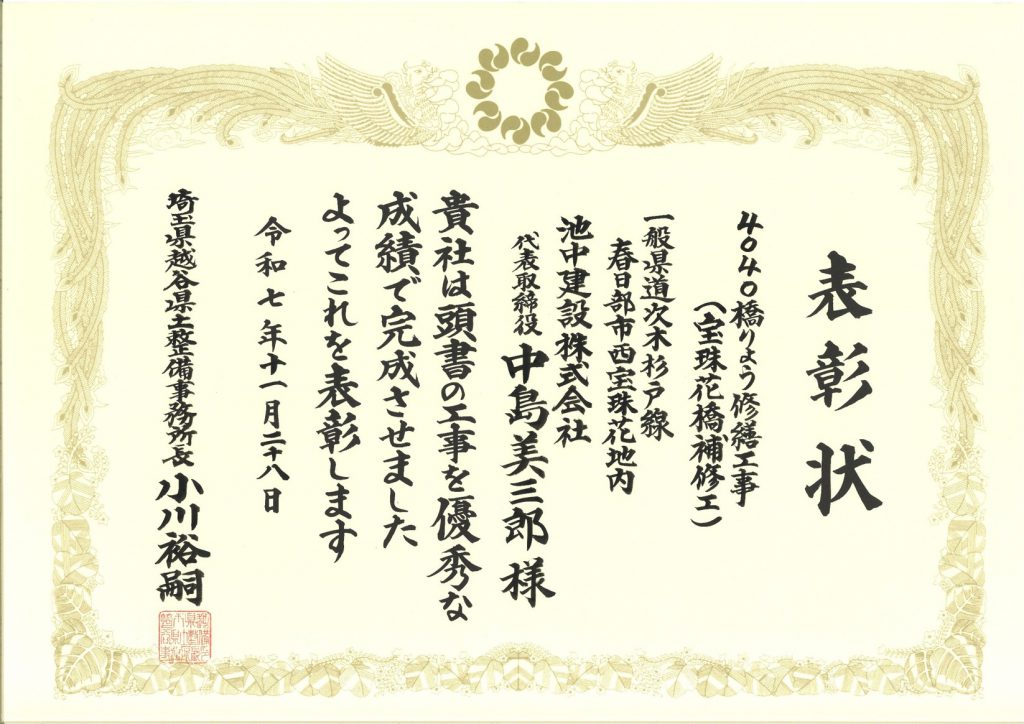 表彰状
4040橋りょう修繕工事
（宝珠花橋補修工）
一般県道次木杉戸線
春日部市西宝珠花地内
池中建設株式会社
代表取締役 中島美三郎 様
貴社は頭書の工事を優秀な
成績で完成させました
よってこれを表彰します
令和七年十一月二十八日
埼玉県越谷県土整備事務所長 小川裕嗣